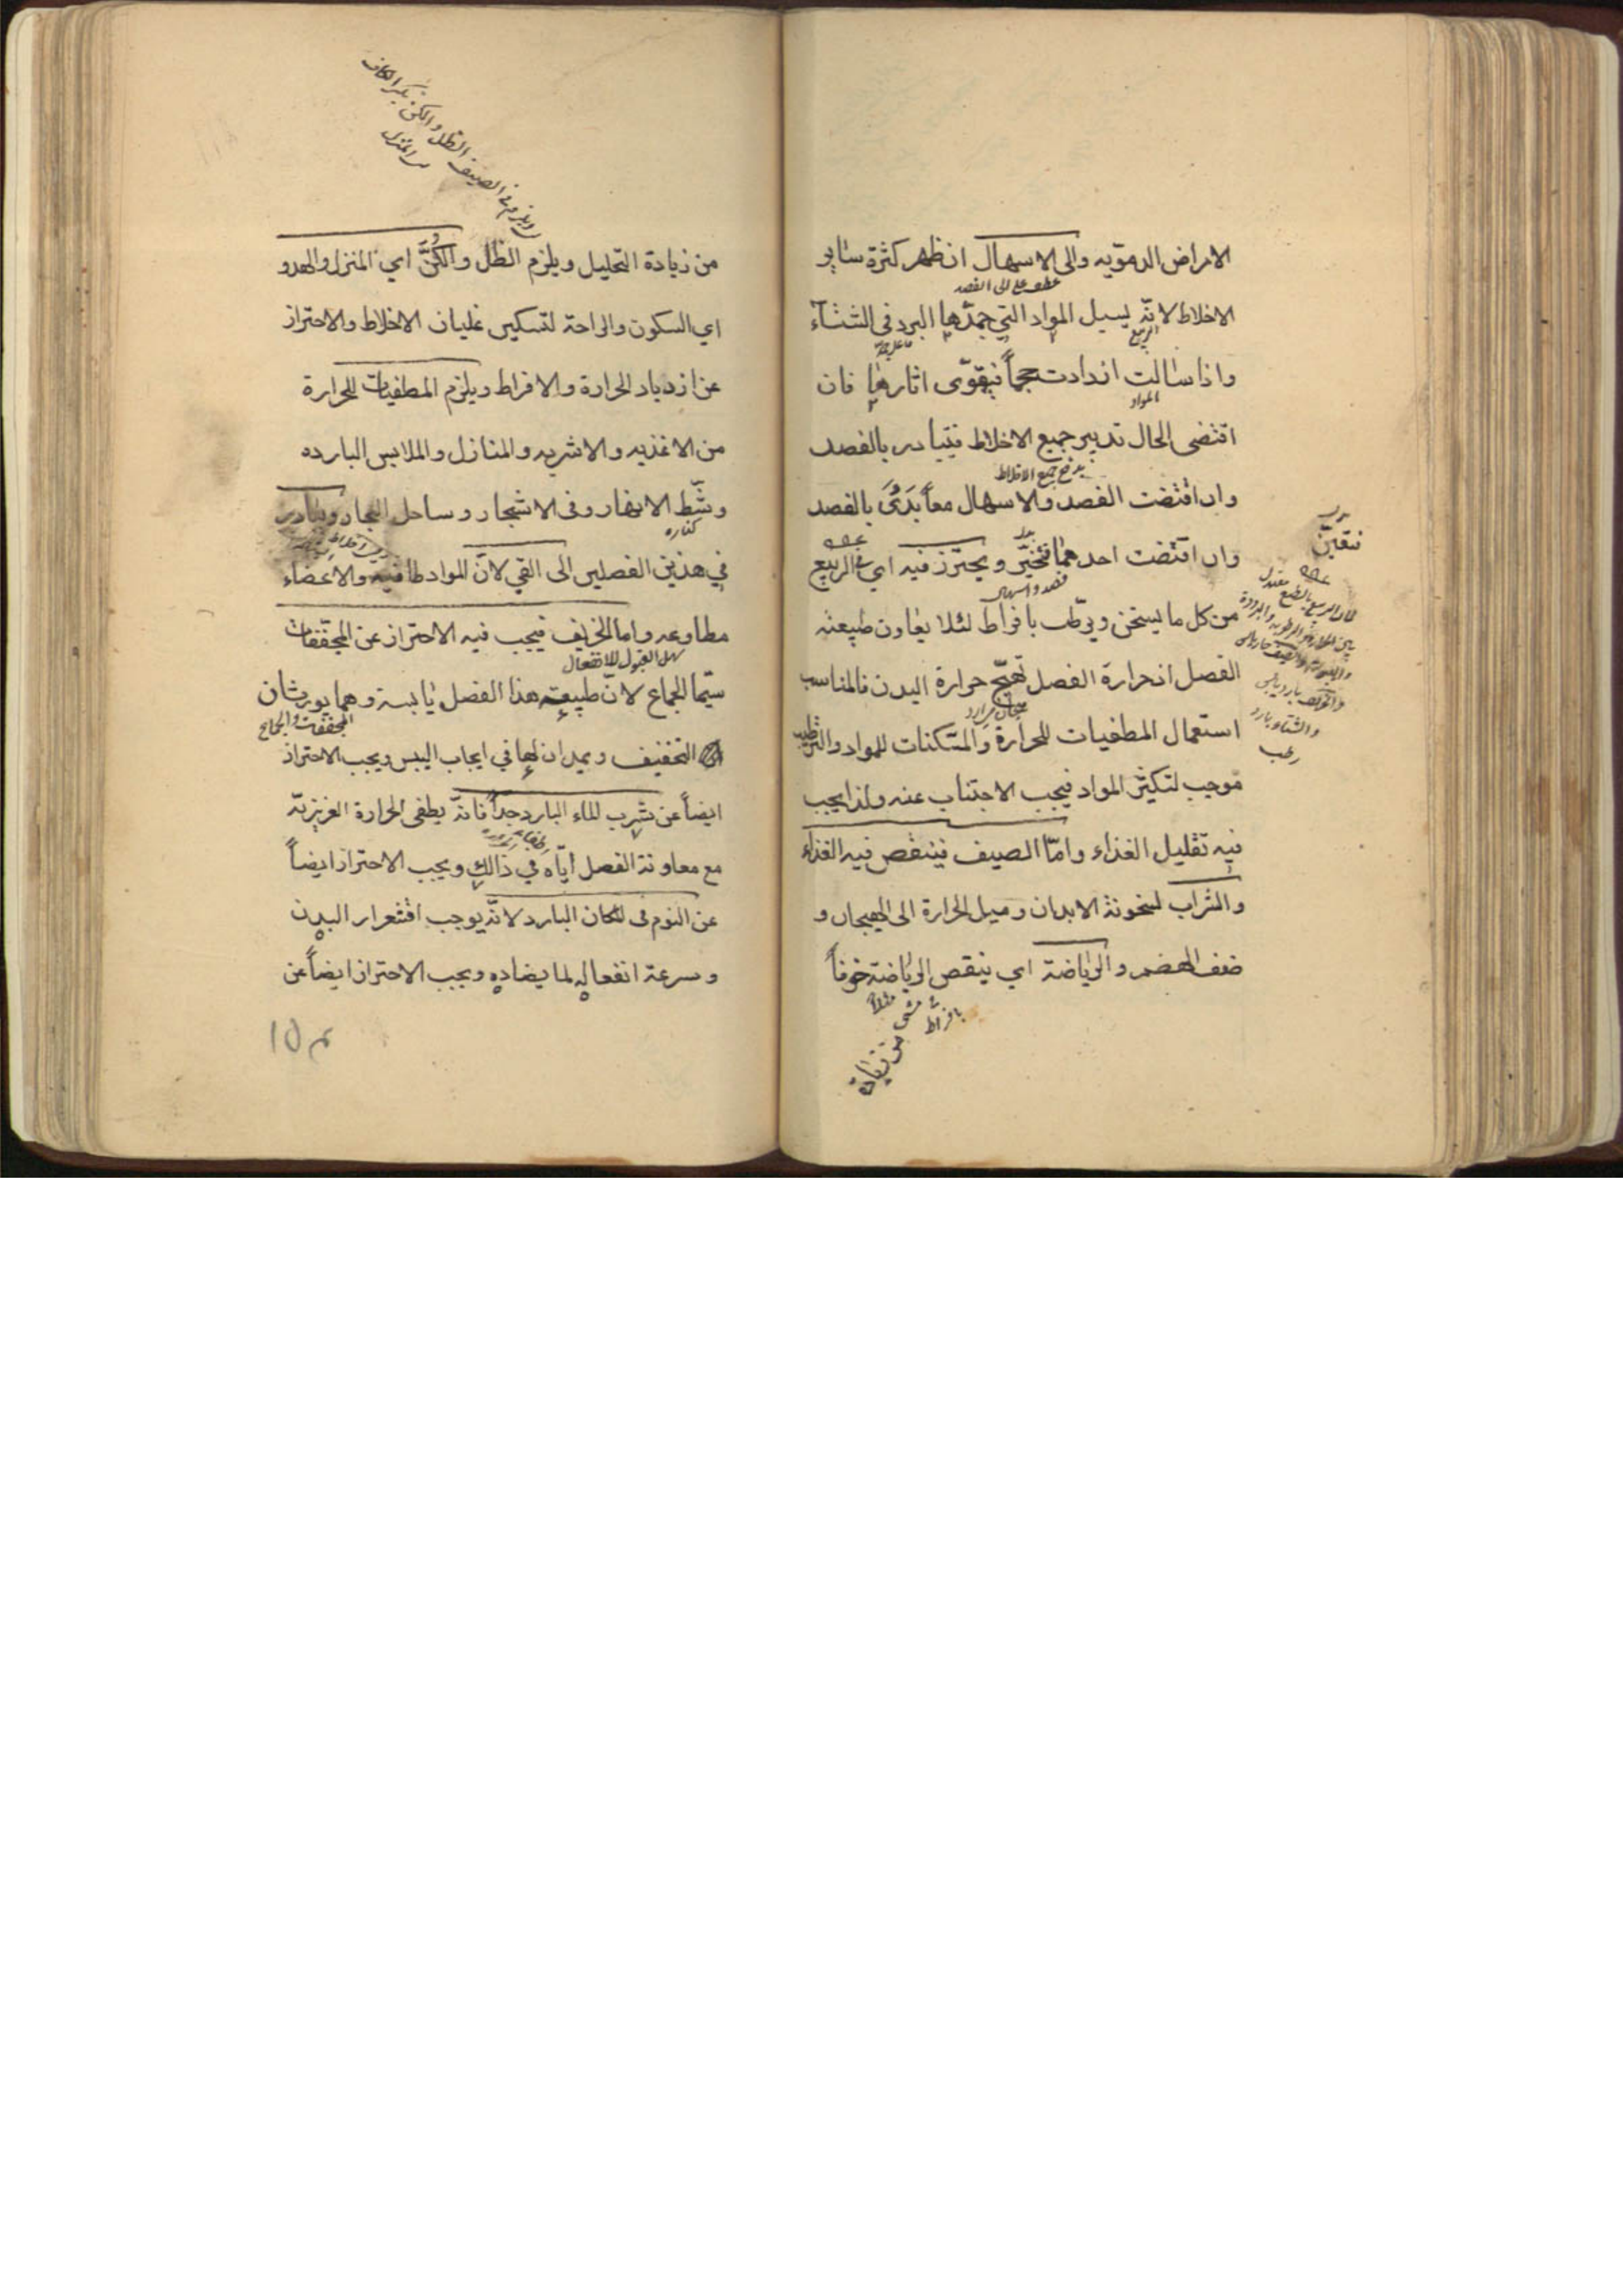 الامراض الدمويه والى الاسهال ان ظهر كثرة ساير
عطف على الى الفصد
الاخلاط لانّه يسيل المواد التي جمدّها البرد فى الشتآء
الربيع
واذا سالت ازدادت حجماً فيقوّى اثارها فان
المواد
اقتضى الحال تدبير جميع الاخلاط فيتبادر بالفصد
بدفع جميع الاخلاط
وان اقتضت الفصد والاسهال معاً بَدَئَ بالفصد
وان اقتضت احدهما فتخيّر ويحترز فيه اي فى الربيع
فصد واسهال
من كل ما يسخن ويرطّب بافراط لئلا يعاون طبيعته
الفصل اذ حرارة الفصل تهيّج حرارة البدن فالمناسب
استعمال المطفيات للحرارة والمسّكنات للمواد والترطيب
موجب لتكثير المواد فيجب الاجتناب عنه ولذا يجب
فيه تقليل الغذاء وامّا الصيف فينقص فيه الغذاء
والشراب لسخونة الابدان وميل الحرارة الى الهيجان و
ضعف الهضم والرياضة اي ينقص الرياضة خوفاً
بافراط
من زيادة
فتعيّن
والشتاء بارد
رطب
ويلزم فى الصيف الظل والكن بكسر الكاف
المنزل
من زيادة التحليل ويلزم الظل والكنَّ اي المنزل والهدو
اي السكون والراحة لتسكين غليان الاخلاط والاحتراز
عن ازدياد الحرارة والافراط ويلزم المطفيات للحرارة
من الاغذيه والاشربه والمنازل والملابس البارده
وشّط الانهار وفى الاشجار وساحل البحار ويبادر
كناره
في هذين الفصلين الى القي لانّ المواد طافيه والاعضاء
مطاوعه واما الخريف فيجب فيه الاحتراز عن المجّففات
سهل القبول للانفعال
سيّما الجماع لانّ طبيعته هذا الفصل يابسة وهما يورثان
المجففات والجماع
التجفيف ويمدان لها في ايجاب اليبس ويجب الاحتراز
ايضاً عن شرب الماء البارد جداً فانّه يطفى الحرارة الغريزيّة
مع معاونة الفصل ايّاه في ذالك ويجب الاحتراز ايضاً
عن النوم فى المكان البارد لانّه يوجب اقشعرار البدن
وسرعة انفعاله لما يضاده ويجب الاحتراز ايضاً عن